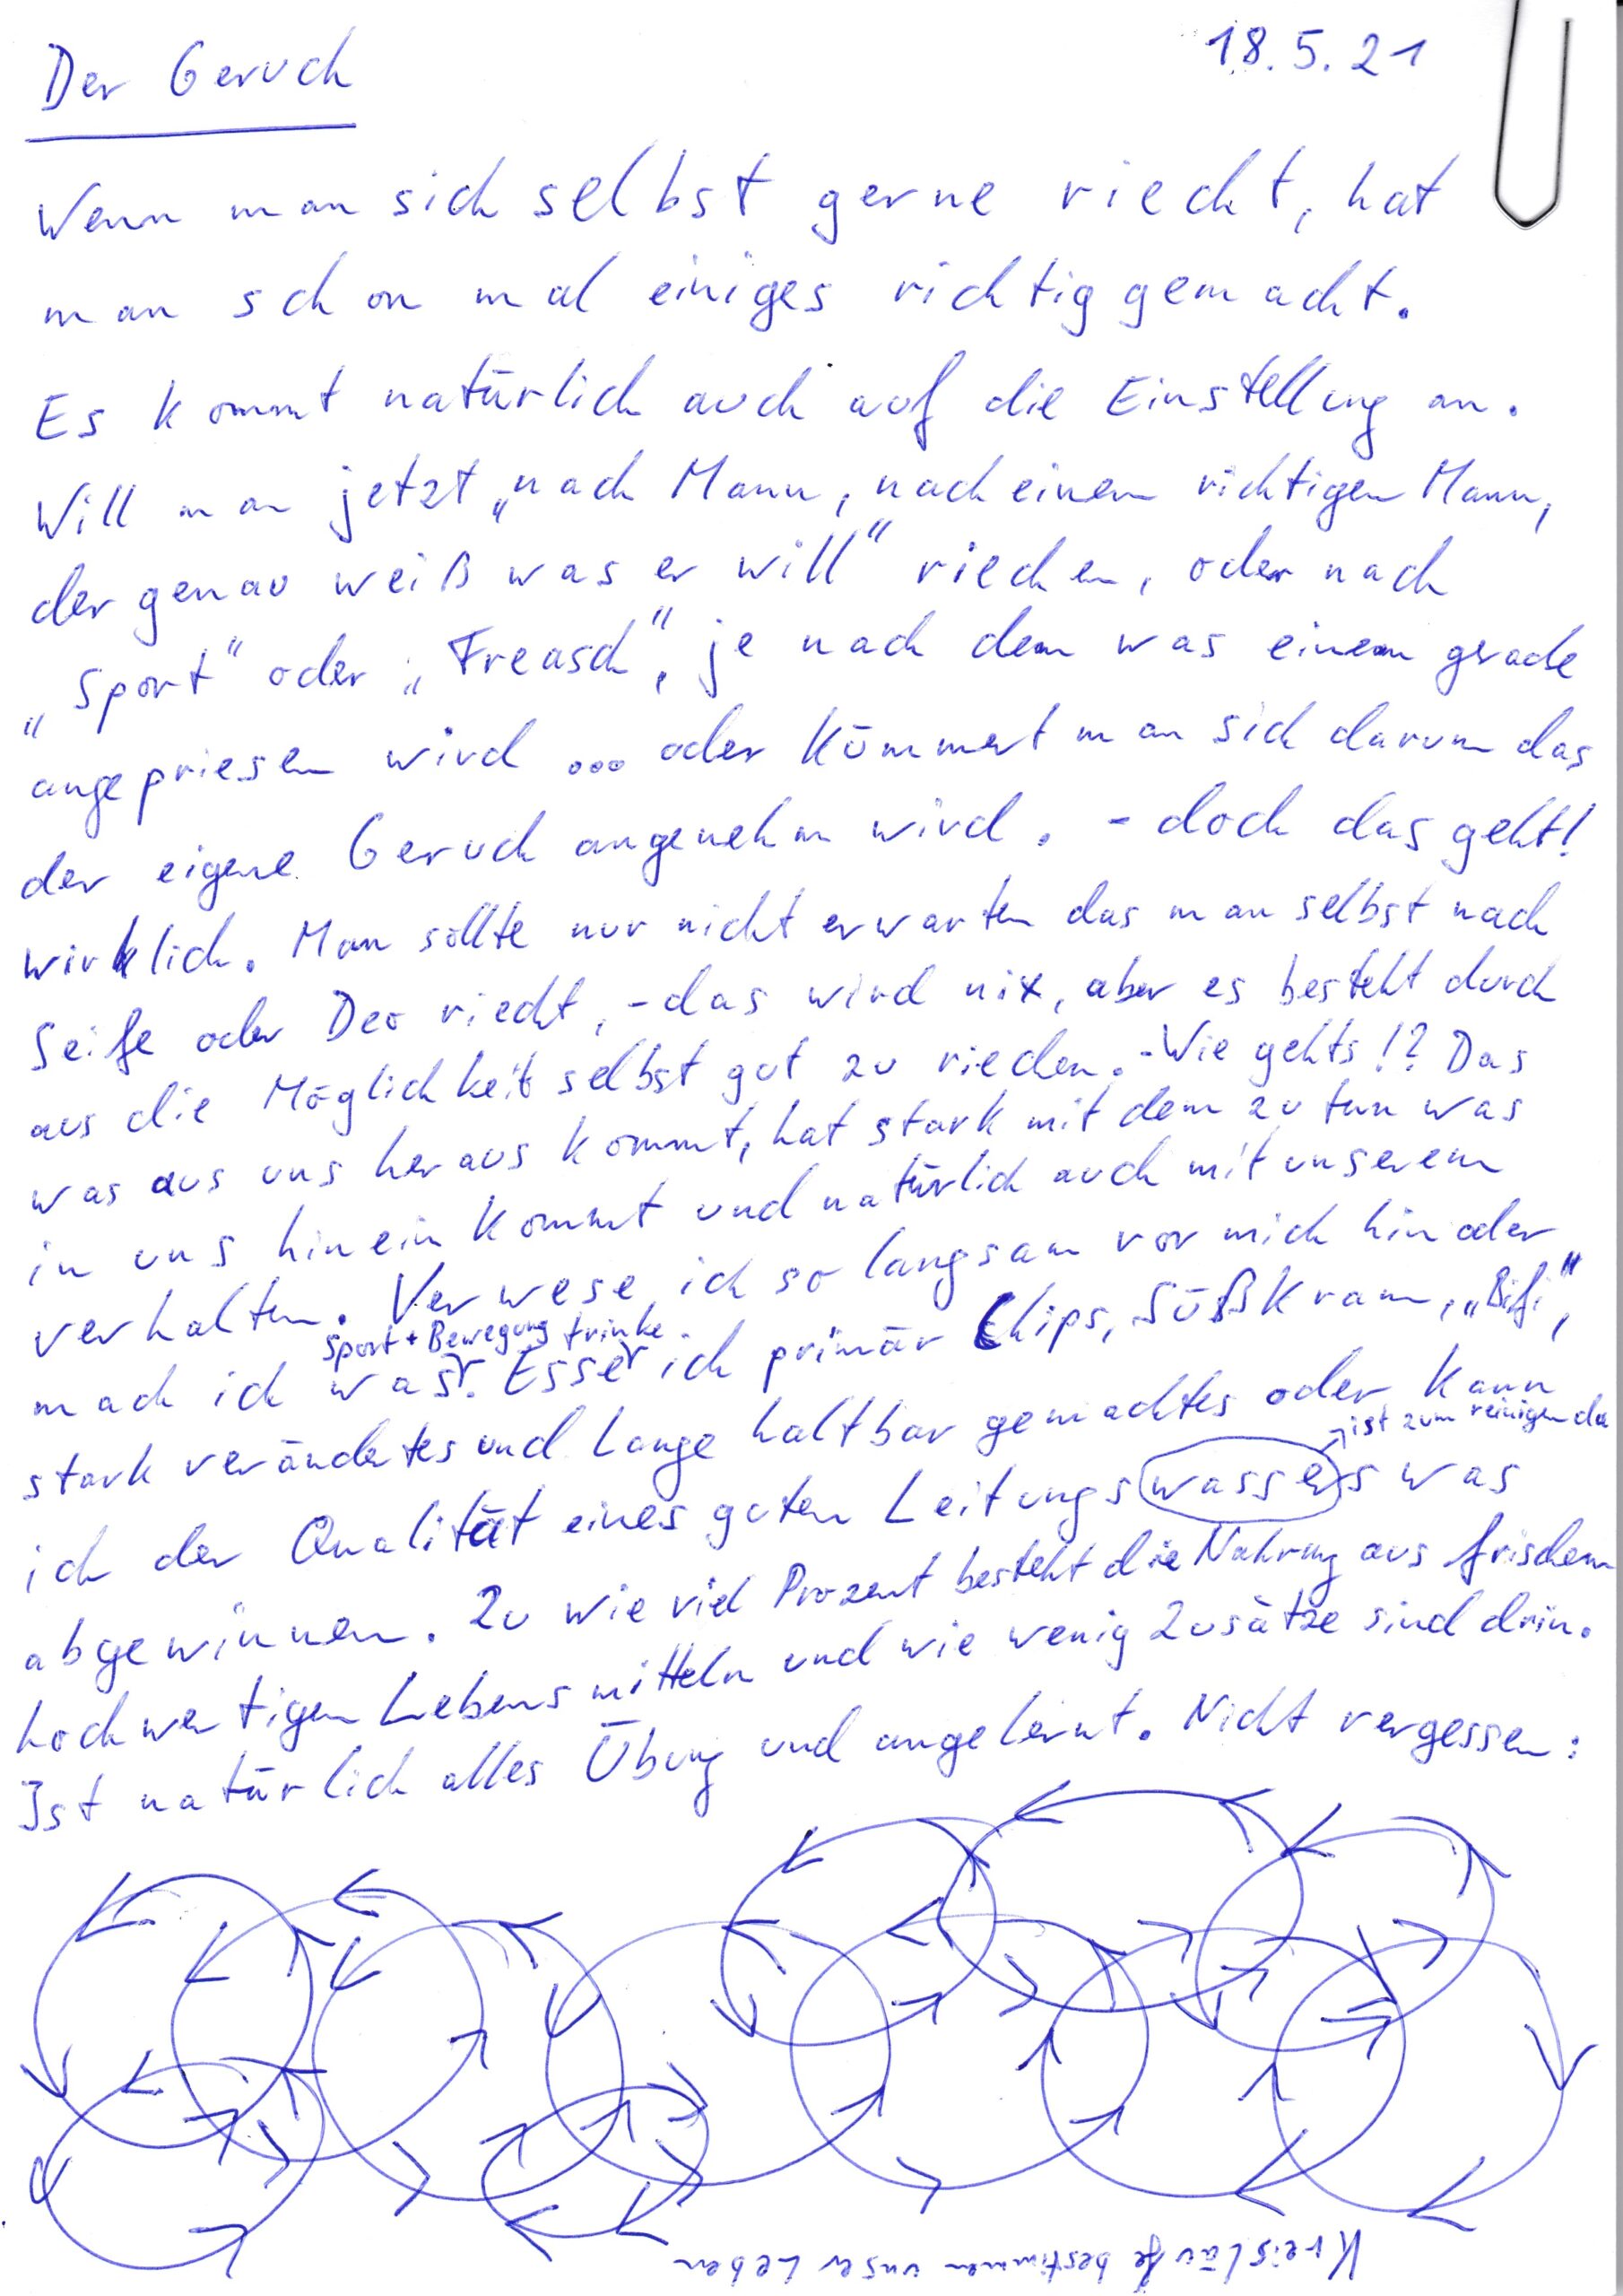 Der Geruch
18.5.21
Wenn man sich selbst gerne riecht, hat
man schon mal einiges richtig gemacht.
Es kommt natürlich auch auf die Einstellung an.
Will man jetzt „nach Mann, nach einem richtigen Mann,
der genau weiß was er will" riechen, oder nach
„Sport" oder „Freasch", je nach dem was einem gerade
angepriesen wird ... oder kümmert man sich darum das
der eigene Geruch angenehm wird. - doch das geht!
wirklich. Man sollte nur nicht erwarten das man selbst nach
Seife oder Deo riecht, - das wird nix, aber es besteht durch
aus die Möglichkeit selbst gut zu riechen. - Wie gehts!? Das
was aus uns heraus kommt, hat stark mit dem zu tun was
in uns hinein kommt und natürlich auch mit unserem
verhalten. Verwese ich so langsam vor mich hin oder
Sport + Bewegung trinke
mach ich was. Esse ich primär Chips, Süßkram, „Bifi",
stark verändertes und lange haltbar gemachtes oder kann
ist zum reinigen da
ich der Qualität eines guten Leitungswassers was
abgewinnen. Zu wie viel Prozent besteht die Nahrung aus frischem
hochwertigen Lebensmitteln und wie wenig Zusätze sind drin.
Ist natürlich alles Übung und angelernt. Nicht vergessen:
Kreisläufe bestimmen unser Leben